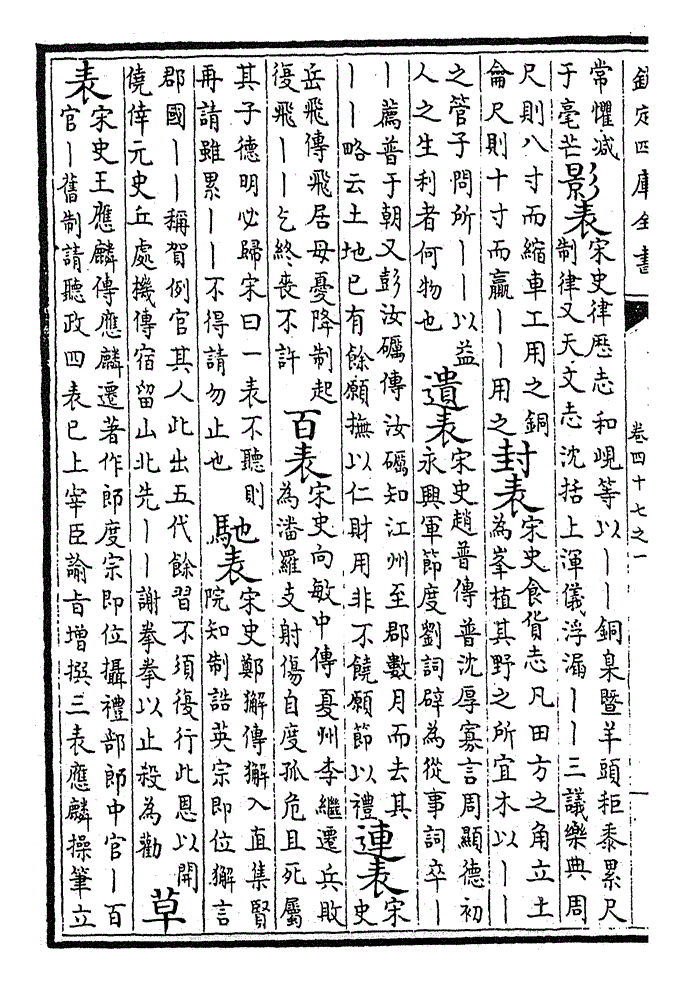 欽定四庫全書
卷四十七之一
常懼減
于毫芒
影表
宋史律歷志和峴等以——銅臬暨羊頭秬黍累尺
制律又天文志沈括上渾儀浮漏——三議樂典周
尺則八寸而縮車工用之銅
侖尺則十寸而贏——用之
封表
宋史食貨志凡田方之角立土
為峯植其野之所宜木以——
之管子問所——以益
人之生利者何物也
遺表
宋史趙普傳普沈厚寡言周顯德初
永興軍節度劉詞辟為從事詞卒—
—薦普于朝又彭汝礪傳汝礪知江州至郡數月而去其
——略云土地已有餘願撫以仁財用非不饒願節以禮
連表
宋
史
岳飛傳飛居母憂降制起
復飛——乞終喪不許
百表
宋史向敏中傳夏州李繼遷兵敗
為潘羅支射傷自度孤危且死屬
其子德明必歸宋曰一表不聽則
再請雖累——不得請勿止也
馳表
宋史鄭獬傳獬入直集賢
院知制誥英宗即位獬言
郡國——稱賀例官其人此出五代餘習不須復行此恩以開
僥倖元史丘處機傳宿留山北先——謝拳拳以止殺為勸
草
表
宋史王應麟傳應麟遷著作郎度宗即位攝禮部郎中官—百
官—舊制請聽政四表已上宰臣諭旨增撰三表應麟操筆立